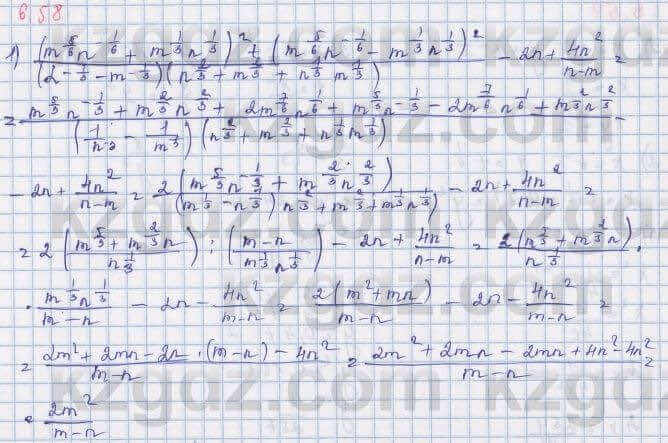 658
1) ((m^(5/6) n^(-1/6) + m^(1/3) n^(1/3))^2 + (m^(5/6) n^(-1/6) - m^(1/3) n^(1/3))^2) / ((2^(-1/3) - m^(-1/3)) (n^(2/3) + m^(2/3) + n^(1/3) m^(1/3))) - 2n + 4n^2/(n-m) =
= (m^(5/3) n^(-1/3) + m^(2/3) n^(2/3) + 2m^(7/6) n^(1/6) + m^(5/3) n^(-1/3) - 2m^(7/6) n^(1/6) + m^(2/3) n^(2/3)) / ((1/n^(1/3) - 1/m^(1/3)) (n^(2/3) + m^(2/3) + n^(1/3) m^(1/3))) -
- 2n + 4n^2/(n-m) = 2(m^(5/3) n^(-1/3) + m^(2/3) n^(2/3)) / ((m^(1/3) - n^(1/3)) n^(2/3) + m^(2/3) + m^(1/3) n^(1/3)) - 2n + 4n^2/(n-m) =
= 2 ((m^(5/3) + m^(2/3) n) / n^(1/3)) : ((m-n) / (m^(1/3) n^(1/3))) - 2n + 4n^2/(n-m) = 2(m^(5/3) + m^(2/3) n) / n^(1/3) ·
· m^(1/3) n^(1/3) / (m-n) - 2n - 4n^2/(m-n) = 2(m^2 + mn)/(m-n) - 2n - 4n^2/(m-n) =
= (2m^2 + 2mn - 2n · (m-n) - 4n^2)/(m-n) = (2m^2 + 2mn - 2mn + 4n^2 - 4n^2)/(m-n) =
= 2m^2/(m-n)
kzgdz.com